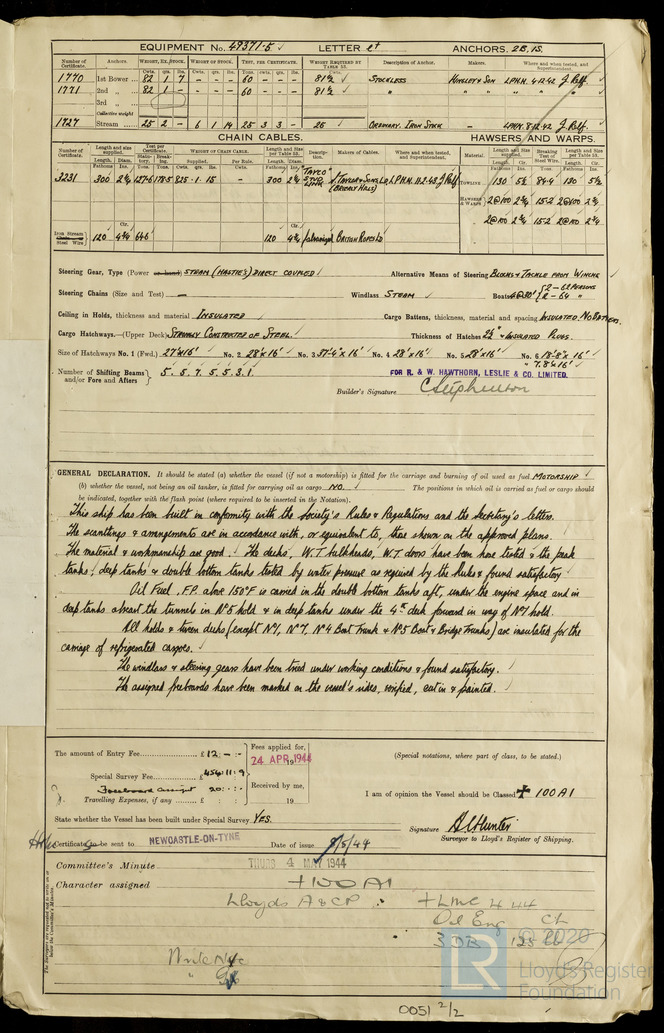 EQUIPMENT No. 49371-5 LETTER et ANCHORS. 2B, 1S.
Number of Certificate. Anchors. WEIGHT, EX. STOCK. WEIGHT OF STOCK. TEST, PER CERTIFICATE. WEIGHT REQUIRED BY TABLE 53. Description of Anchor. Makers. Where and when tested, and Superintendent.
Cwts. qrs. lbs. Tons. Cwts.
1770 1st Bower 82 1 7 - - - 60 - - 81½ STOCKLESS HINGLEY & SON LPHH. 4.12.42 J. Relf
1771 2nd " 82 1 - - 60 - - 81½ " " " " "
3rd "
Collective weight
1727 Stream 25 2 - 6 1 14 25 3 3 - 25 ORDINARY. IRON STOCK - LPHH. 8.12.42 J. Relf.
CHAIN CABLES. HAWSERS AND WARPS.
Number of Certificate. Length and size supplied. Test per Certificate. WEIGHT OF CHAIN CABLE. Length and size per Table 53. Description. Makers of Cables. Where and when tested, and Superintendent. Material. Length and Size supplied. Breaking Test of Steel Wire. Length and Size per Table 53.
Length. Diam. Statutory. Breaking. Supplied. Per Rule. Length. Diam. Length. Cir. Length. Cir.
3231 300 825.1.15 - 300 "TAYCO" & SONS Ld LPHH. 11.2.43 J Relf TOWLING 130 5½ 84.4 130 5½
HAWSERS & WARPS 2@100 2¾ 15.2 2@100 2¾
2@100 2¾ 15.2 2@100 2¾
Iron Stream Chain or Steel Wire 120 4¾ 64.6 120 4¾ Galvanized BRITON ROPES Ld
Steering Gear, Type (Power or hand) STEAM (HASTIE'S) DIRECT COUPLED Alternative Means of Steering BLOCKS & TACKLE FROM WINCH
Steering Chains (Size and Test) - Windlass STEAM Boats 4@30' 2 - 62 PERSONS
2 - 64 "
Ceiling in Holds, thickness and material INSULATED Cargo Battens, thickness, material and spacing INSULATED. NO BATTENS.
Cargo Hatchways.-(Upper Deck) STRONGLY CONSTRUCTED OF STEEL. Thickness of Hatches 2½" & INSULATED PLUGS.
Size of Hatchways No. 1 (Fwd.) 27' x 16' No. 2 28' x 16' No. 3 37'-4" x 16' No. 4 28' x 16' No. 5 28' x 16' No. 6 18'-8" x 16'
" 7. 8' x 16'
Number of Shifting Beams and/or Fore and Afters 5. 5. 7. 5. 5. 3. 1.
FOR R. & W. HAWTHORN, LESLIE & CO. LIMITED.
Builder's Signature C Stephenson
GENERAL DECLARATION. It should be stated (a) whether the vessel (if not a motorship) is fitted for the carriage and burning of oil used as fuel MOTORSHIP
(b) whether the vessel, not being an oil tanker, is fitted for carrying oil as cargo NO. The positions in which oil is carried as fuel or cargo should
be indicated, together with the flash point (where required to be inserted in the Notation).
This ship has been built in conformity with the Society's Rules & Regulations and the Secretary's letters.
The scantlings & arrangements are in accordance with, or equivalent to, those shown on the approved plans.
The material & workmanship are good. The decks, W.T. bulkheads, W.T doors have been hose tested & the peak
tanks, deep tanks & double bottom tanks tested by water pressure as required by the Rules & found satisfactory
Oil Fuel, F.P. above 150°F is carried in the double bottom tanks aft, under the engine space and in
deep tanks abreast the tunnels in No 5 hold & in deep tanks under the 4th deck forward in way of No 1 hold.
All holds & tween decks (except No 1, No 7, No 4 Boat Trunk & No 5 Boat & Bridge Trunks) are insulated for the
carriage of refrigerated cargoes.
The windlass & steering gears have been tried under working conditions & found satisfactory.
The assigned freeboards have been marked on the vessel's sides, verified, cut in & painted.
The amount of Entry Fee £12 - : -
Fees applied for, 24 APR 1944
(Special notations, where part of class, to be stated.)
Special Survey Fee £454 : 11 : 9
Freeboard assigt 20 : - : -
Received by me,
Travelling Expenses, if any £ : : 19
I am of opinion the Vessel should be Classed ✠ 100A1
State whether the Vessel has been built under Special Survey YES.
Signature A C Hunter
Surveyor to Lloyd's Register of Shipping.
Certificate to be sent to NEWCASTLE-ON-TYNE Date of issue 8/5/44
Committee's Minute THURS 4 MAY 1944
Character assigned +100A1
Lloyds A & CP. +LMC 4.44
Oil Eng CL
3 DB 125 lb
Write Nyc
"
The Surveyors are requested not to write on or below the Committee's Minutes.
© 2020
LR Lloyd's Register
Foundation
0051 2/2